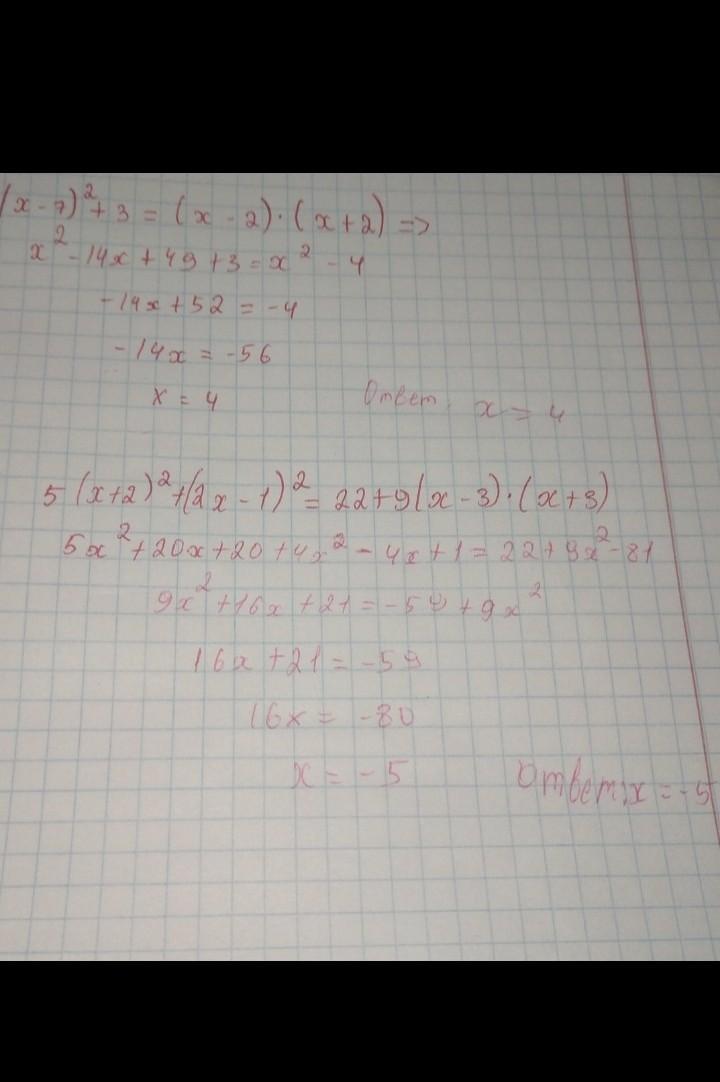 (x-7)²+3 = (x-2)·(x+2) =>
x²-14x+49+3=x²-4
-14x+52 = -4
-14x = -56
x = 4 Ответ: x = 4
5(x+2)²+(2x-1)²=22+9(x-3)·(x+3)
5x²+20x+20+4x²-4x+1=22+9x²-81
9x²+16x+21=-59+9x²
16x+21=-59
16x= -80
x = -5 Ответ: x = -5